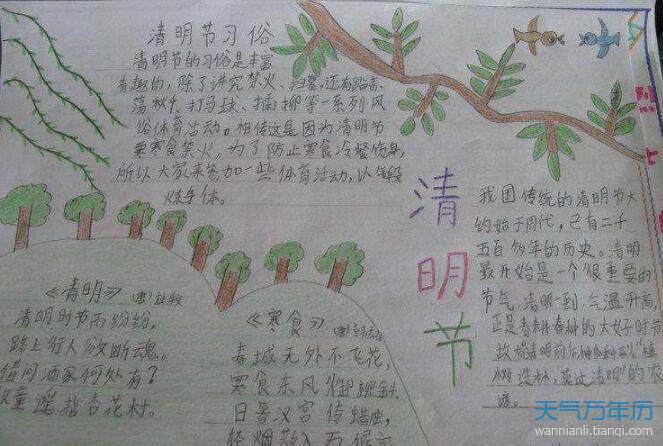 清明节习俗
清明节的习俗是丰富
有趣的,除了讲究禁火、扫墓,还有踏青、
荡秋千、打马球、插柳等一系列风
俗体育活动。相传这是因为清明节
要寒食禁火,为了防止寒食冷餐伤身,
所以大家来参加一些体育活动,以锻
炼身体。
清明节
我国传统的清明节大
约始于周代,已有二千
五百多年的历史。清明
最开始是一个很重要的
节气,清明一到,气温升高,
正是春耕春种的大好时节
故有清明前后
树造林,莫过清明"的农
谚。
《清明》 杜牧
清明时节雨纷纷,
路上行人欲断魂。
借问酒家何处有?
牧童遥指杏花村。
《寒食》
春城无处不飞花,
寒食东风柳斜
日暮汉宫传蜡烛,
轻烟散入五侯家
天气万年历
wannianli.tianqi.com